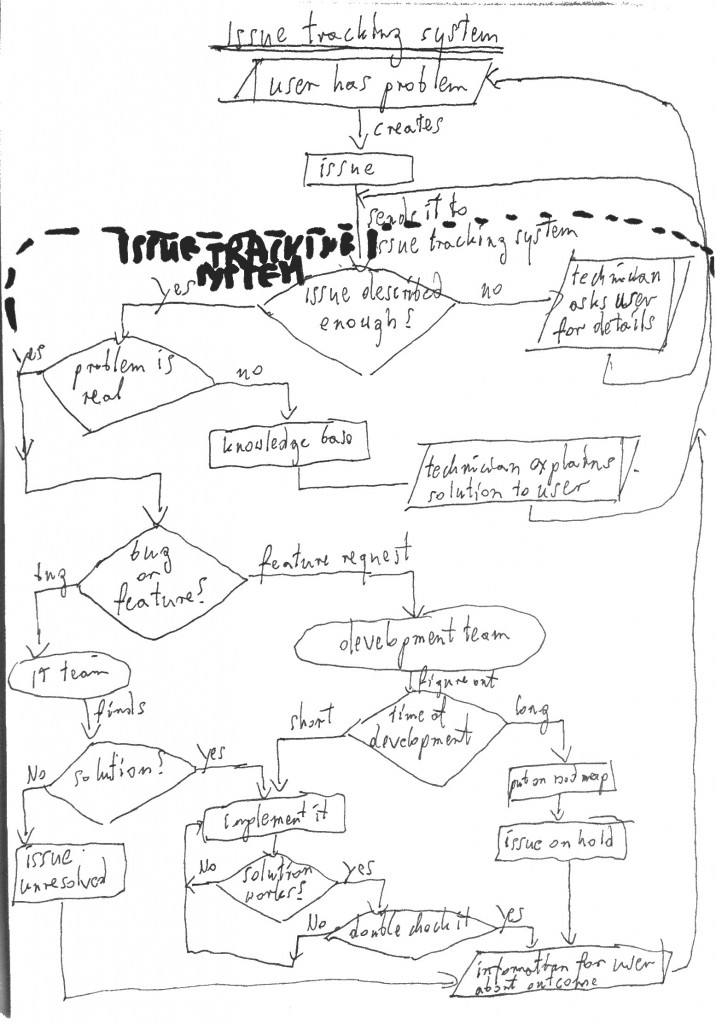 Issue tracking system
user has problem
creates
issue
sends it to
issue tracking system
ISSUE TRACKING
SYSTEM
yes
issue described
enough?
no
technician
asks user
for details
yes
problem is
real
no
knowledge base
technician explains
solution to user
bug
or
feature?
bug
feature request
IT team
development team
finds
figure out
short
time of
development
long
No
solution?
yes
put on road map
implement it
issue on hold
issue
unresolved
No
solution
works?
yes
No
double check it
yes
information for user
about outcome